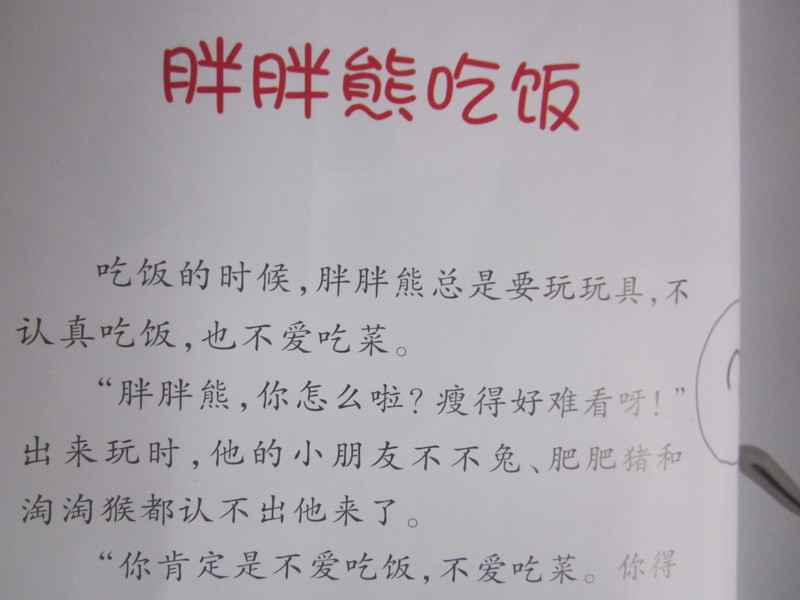 胖胖熊吃饭
吃饭的时候,胖胖熊总是要玩玩具,不
认真吃饭,也不爱吃菜。
“胖胖熊,你怎么啦?瘦得好难看呀!”
出来玩时,他的小朋友不不兔、肥肥猪和
淘淘猴都认不出他来了。
“你肯定是不爱吃饭,不爱吃菜。你得